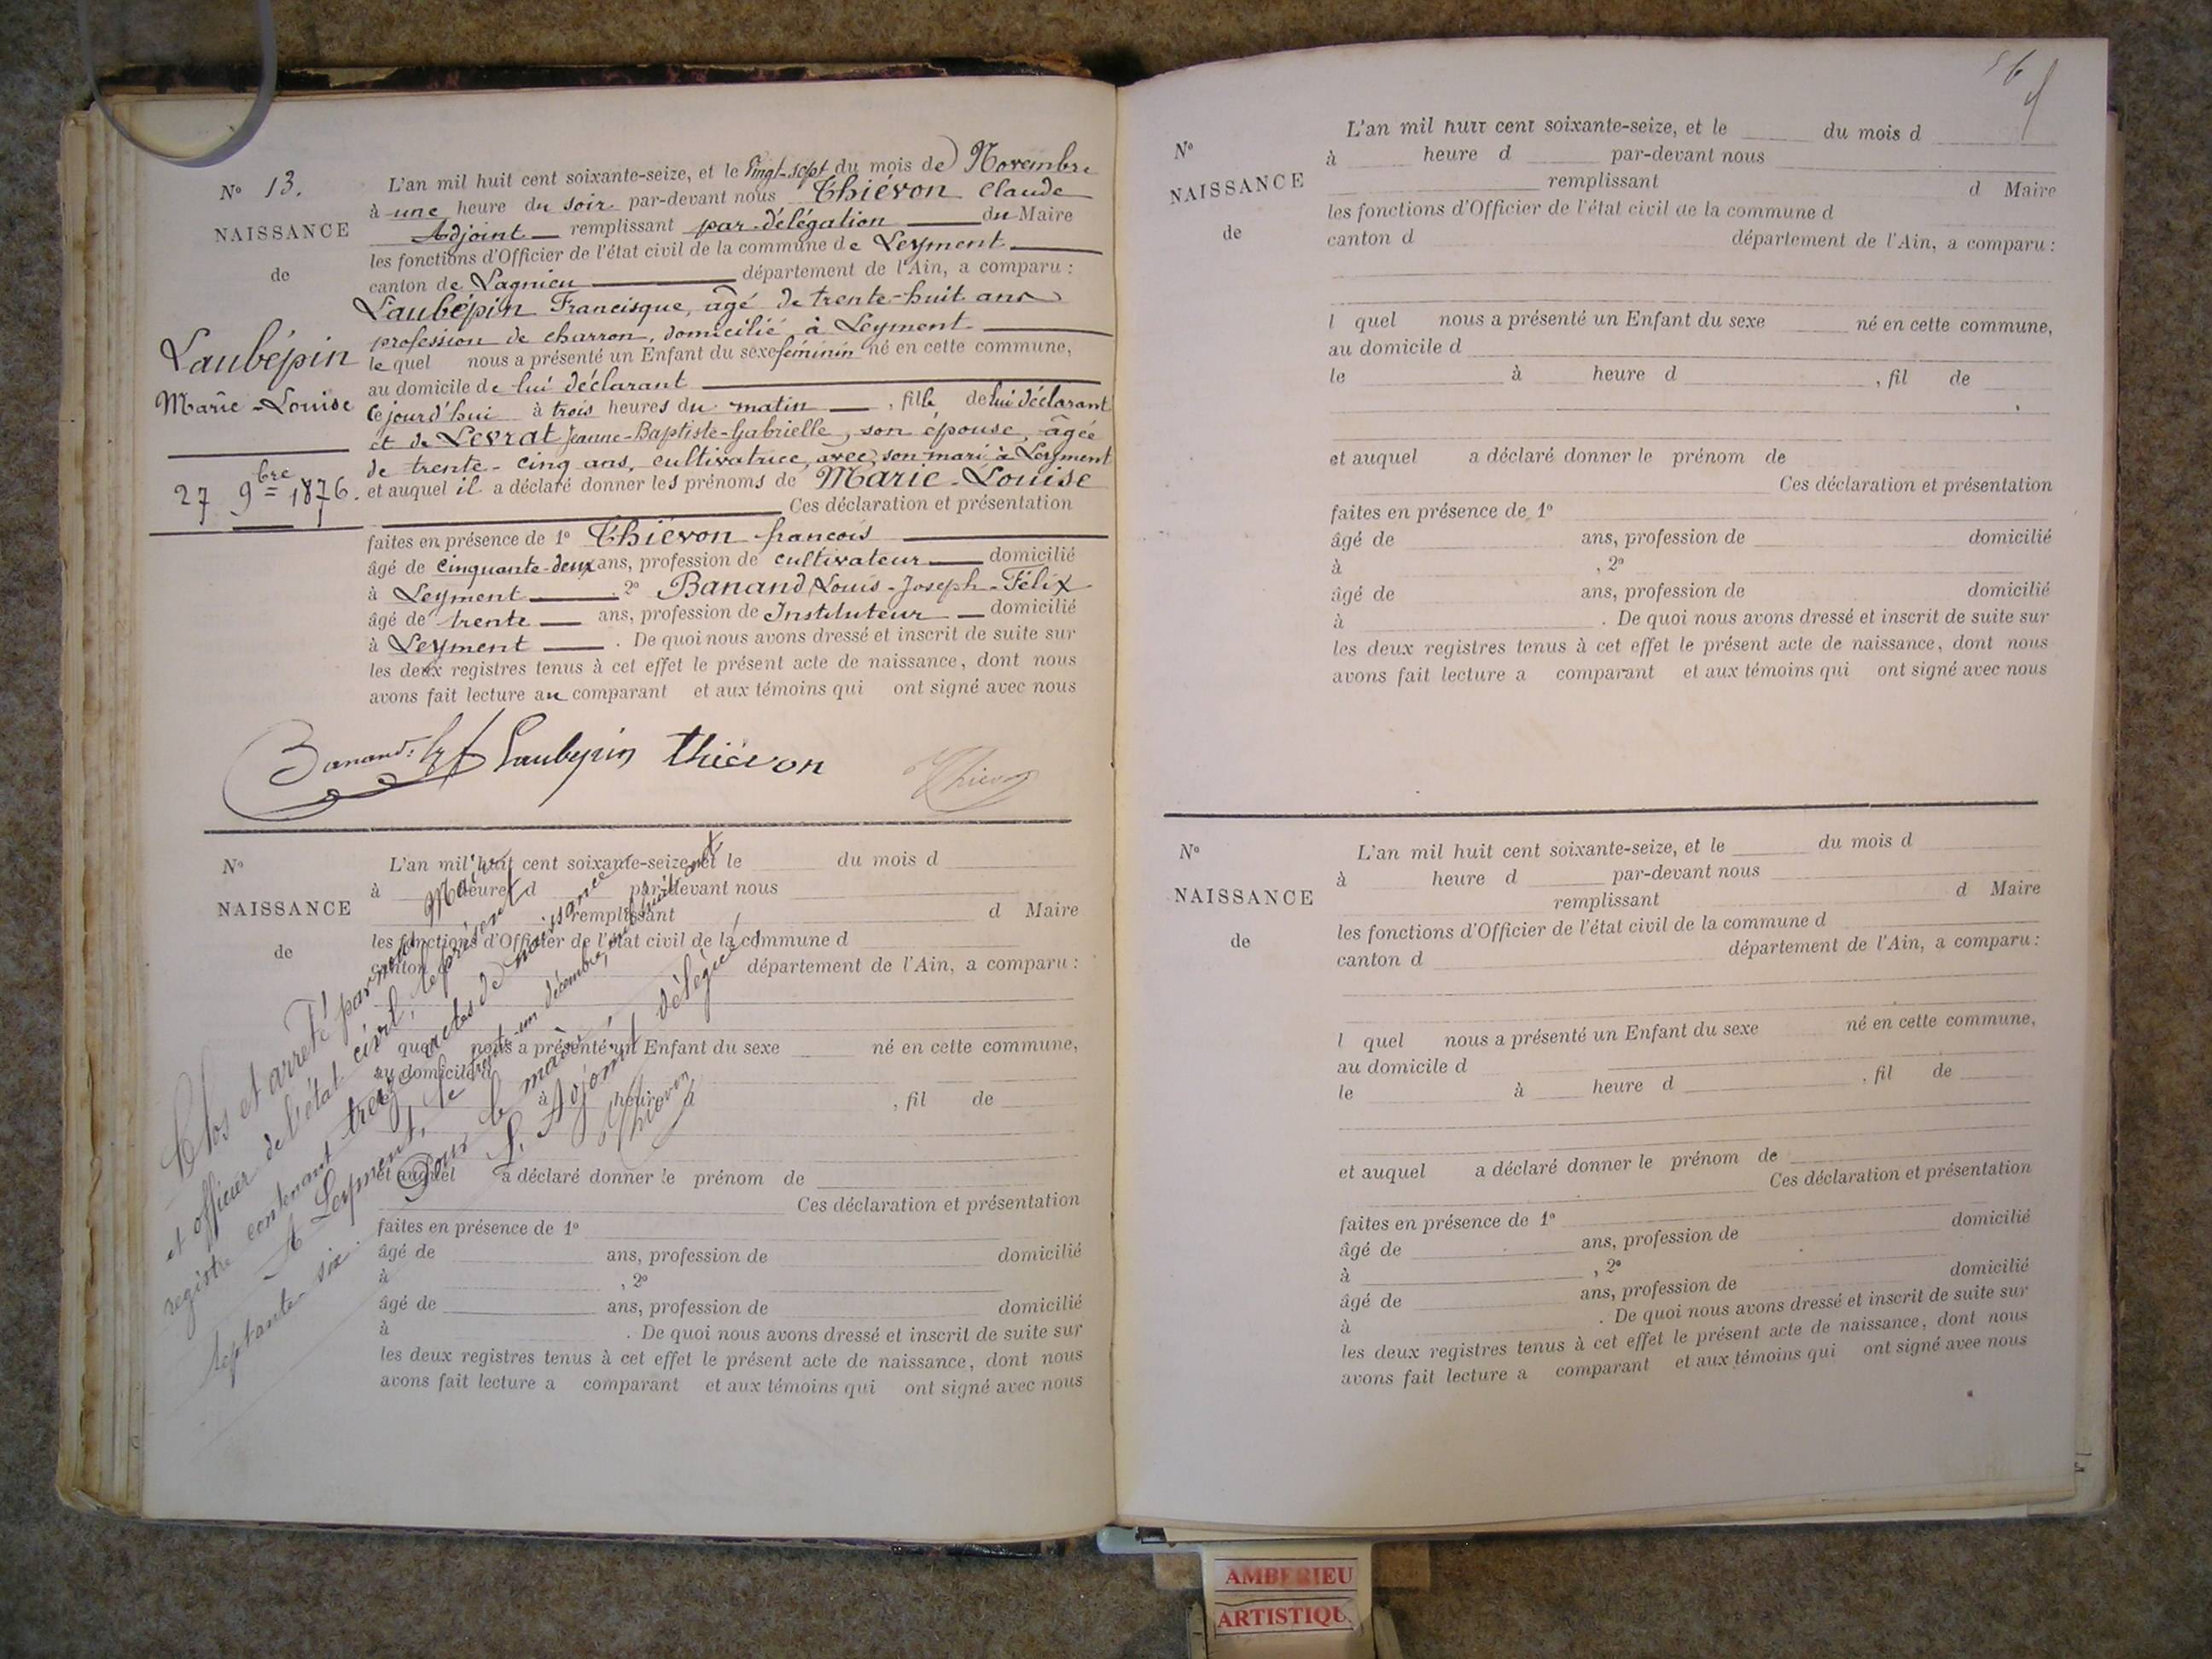 N° 13.
NAISSANCE
de
Laubépin
Marie-Louise
27 9bre 1876.
L'an mil huit cent soixante-seize, et le Vingt-sept du mois de Novembre
à une heure du soir par-devant nous Thiévon Claude
Adjoint remplissant par délégation du Maire
les fonctions d'Officier de l'état civil de la commune de Leyment
canton de Lagnieu département de l'Ain, a comparu :
Laubépin Francisque, âgé de trente-huit ans
profession de charron, domicilié à Leyment
le quel nous a présenté un Enfant du sexe féminin né en cette commune,
au domicile de lui déclarant
Cejourd'hui à trois heures du matin , fille de lui déclarant
et de Levrat Jeanne-Baptiste-Gabrielle, son épouse, âgée
de trente-cinq ans, cultivatrice, avec son mari à Leyment
et auquel il a déclaré donner les prénoms de Marie-Louise
Ces déclaration et présentation
faites en présence de 1° Thiévon francois
âgé de cinquante-deux ans, profession de cultivateur domicilié
à Leyment . 2° Banand Louis-Joseph-Félix
âgé de trente ans, profession de Instituteur domicilié
à Leyment . De quoi nous avons dressé et inscrit de suite sur
les deux registres tenus à cet effet le présent acte de naissance, dont nous
avons fait lecture au comparant et aux témoins qui ont signé avec nous
Banand Laubepin thiévon Thievon
N°
NAISSANCE
de
L'an mil huit cent soixante-seize, et le du mois d
à heure d par-devant nous
remplissant d Maire
les fonctions d'Officier de l'état civil de la commune d
canton d département de l'Ain, a comparu :
quel nous a présenté un Enfant du sexe né en cette commune,
au domicile d
à heure d , fil de
et auquel a déclaré donner le prénom de
Ces déclaration et présentation
faites en présence de 1°
âgé de ans, profession de domicilié
à , 2°
âgé de ans, profession de domicilié
à . De quoi nous avons dressé et inscrit de suite sur
les deux registres tenus à cet effet le présent acte de naissance, dont nous
avons fait lecture a comparant et aux témoins qui ont signé avec nous
Clos et arrêté par nous Maire
et officier de l'état civil, le présent
registre contenant treize actes de naissance
A Leyment, le trente-un décembre, mil huit cent
septante-six.
Pour le maire,
L'Adjoint délégué,
Thievon
56
N°
NAISSANCE
de
L'an mil huit cent soixante-seize, et le du mois d
à heure d par-devant nous
remplissant d Maire
les fonctions d'Officier de l'état civil de la commune d
canton d département de l'Ain, a comparu :
l quel nous a présenté un Enfant du sexe né en cette commune,
au domicile d
le à heure d , fil de
et auquel a déclaré donner le prénom de
Ces déclaration et présentation
faites en présence de 1°
âgé de ans, profession de domicilié
à , 2°
âgé de ans, profession de domicilié
à . De quoi nous avons dressé et inscrit de suite sur
les deux registres tenus à cet effet le présent acte de naissance, dont nous
avons fait lecture a comparant et aux témoins qui ont signé avec nous
N°
NAISSANCE
de
L'an mil huit cent soixante-seize, et le du mois d
à heure d par-devant nous
remplissant d Maire
les fonctions d'Officier de l'état civil de la commune d
canton d département de l'Ain, a comparu :
l quel nous a présenté un Enfant du sexe né en cette commune,
au domicile d
le à heure d , fil de
et auquel a déclaré donner le prénom de
Ces déclaration et présentation
faites en présence de 1°
âgé de ans, profession de domicilié
à , 2°
âgé de ans, profession de domicilié
à . De quoi nous avons dressé et inscrit de suite sur
les deux registres tenus à cet effet le présent acte de naissance, dont nous
avons fait lecture a comparant et aux témoins qui ont signé avec nous
AMBERIEU
ARTISTIQU